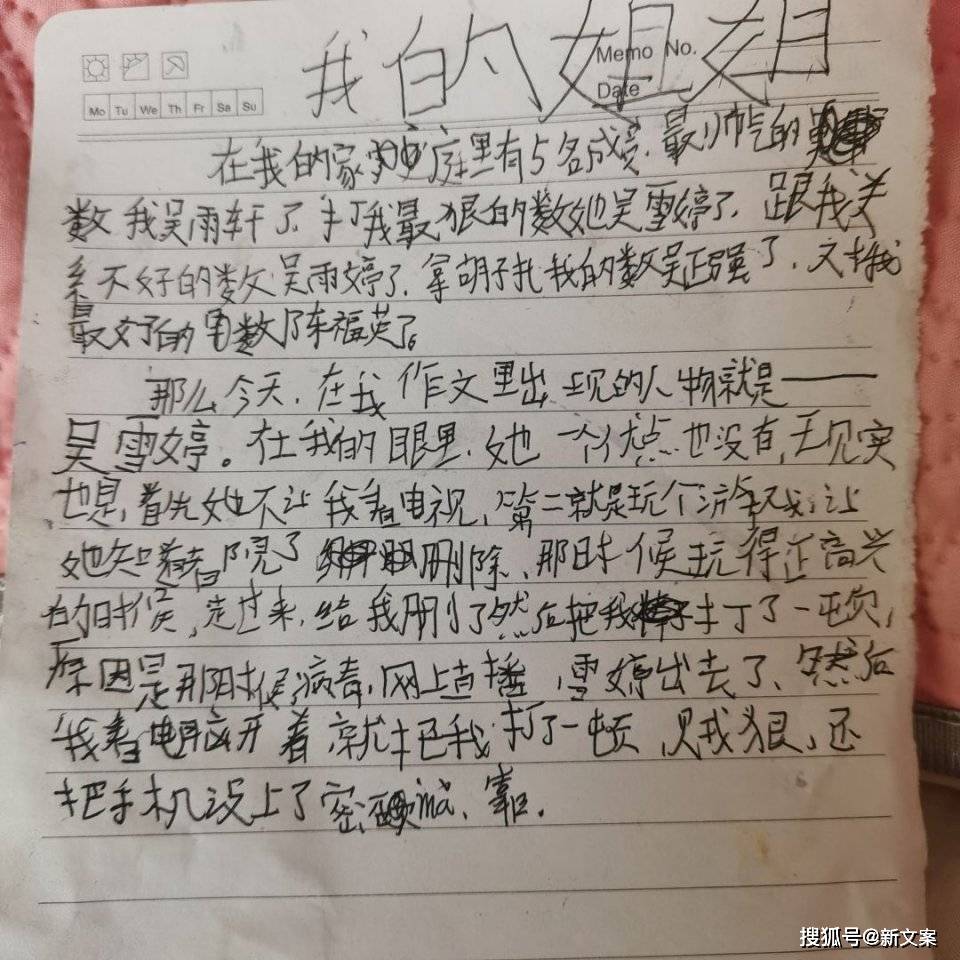 我的姐姐
Memo No.
Date
Mo Tu We Th Fr Sa Su
在我的家庭里有5名成员,最帅气的
数我吴雨轩了,打我最狠的数她吴雪婷了,跟我关
系不好的数吴雨婷了,拿胡子扎我的数吴正强了,又打我
最好的数陈福英了。
那么今天,在我作文里出现的人物就是——
吴雪婷。在我的眼里,她一个优点也没有,王见实
也是,首先她不让我看电视,第二就是玩个游戏,让
她知道了删除,那时候玩得正高兴
的时候,走过来,给我删了然后把我打了一顿,
原因是那时候病毒,网上直播,雪婷出去了,然后
我看电脑开着就把我打了一顿,贼狠,还
把手机设上了密mǎ,靠。
搜狐号@新文案